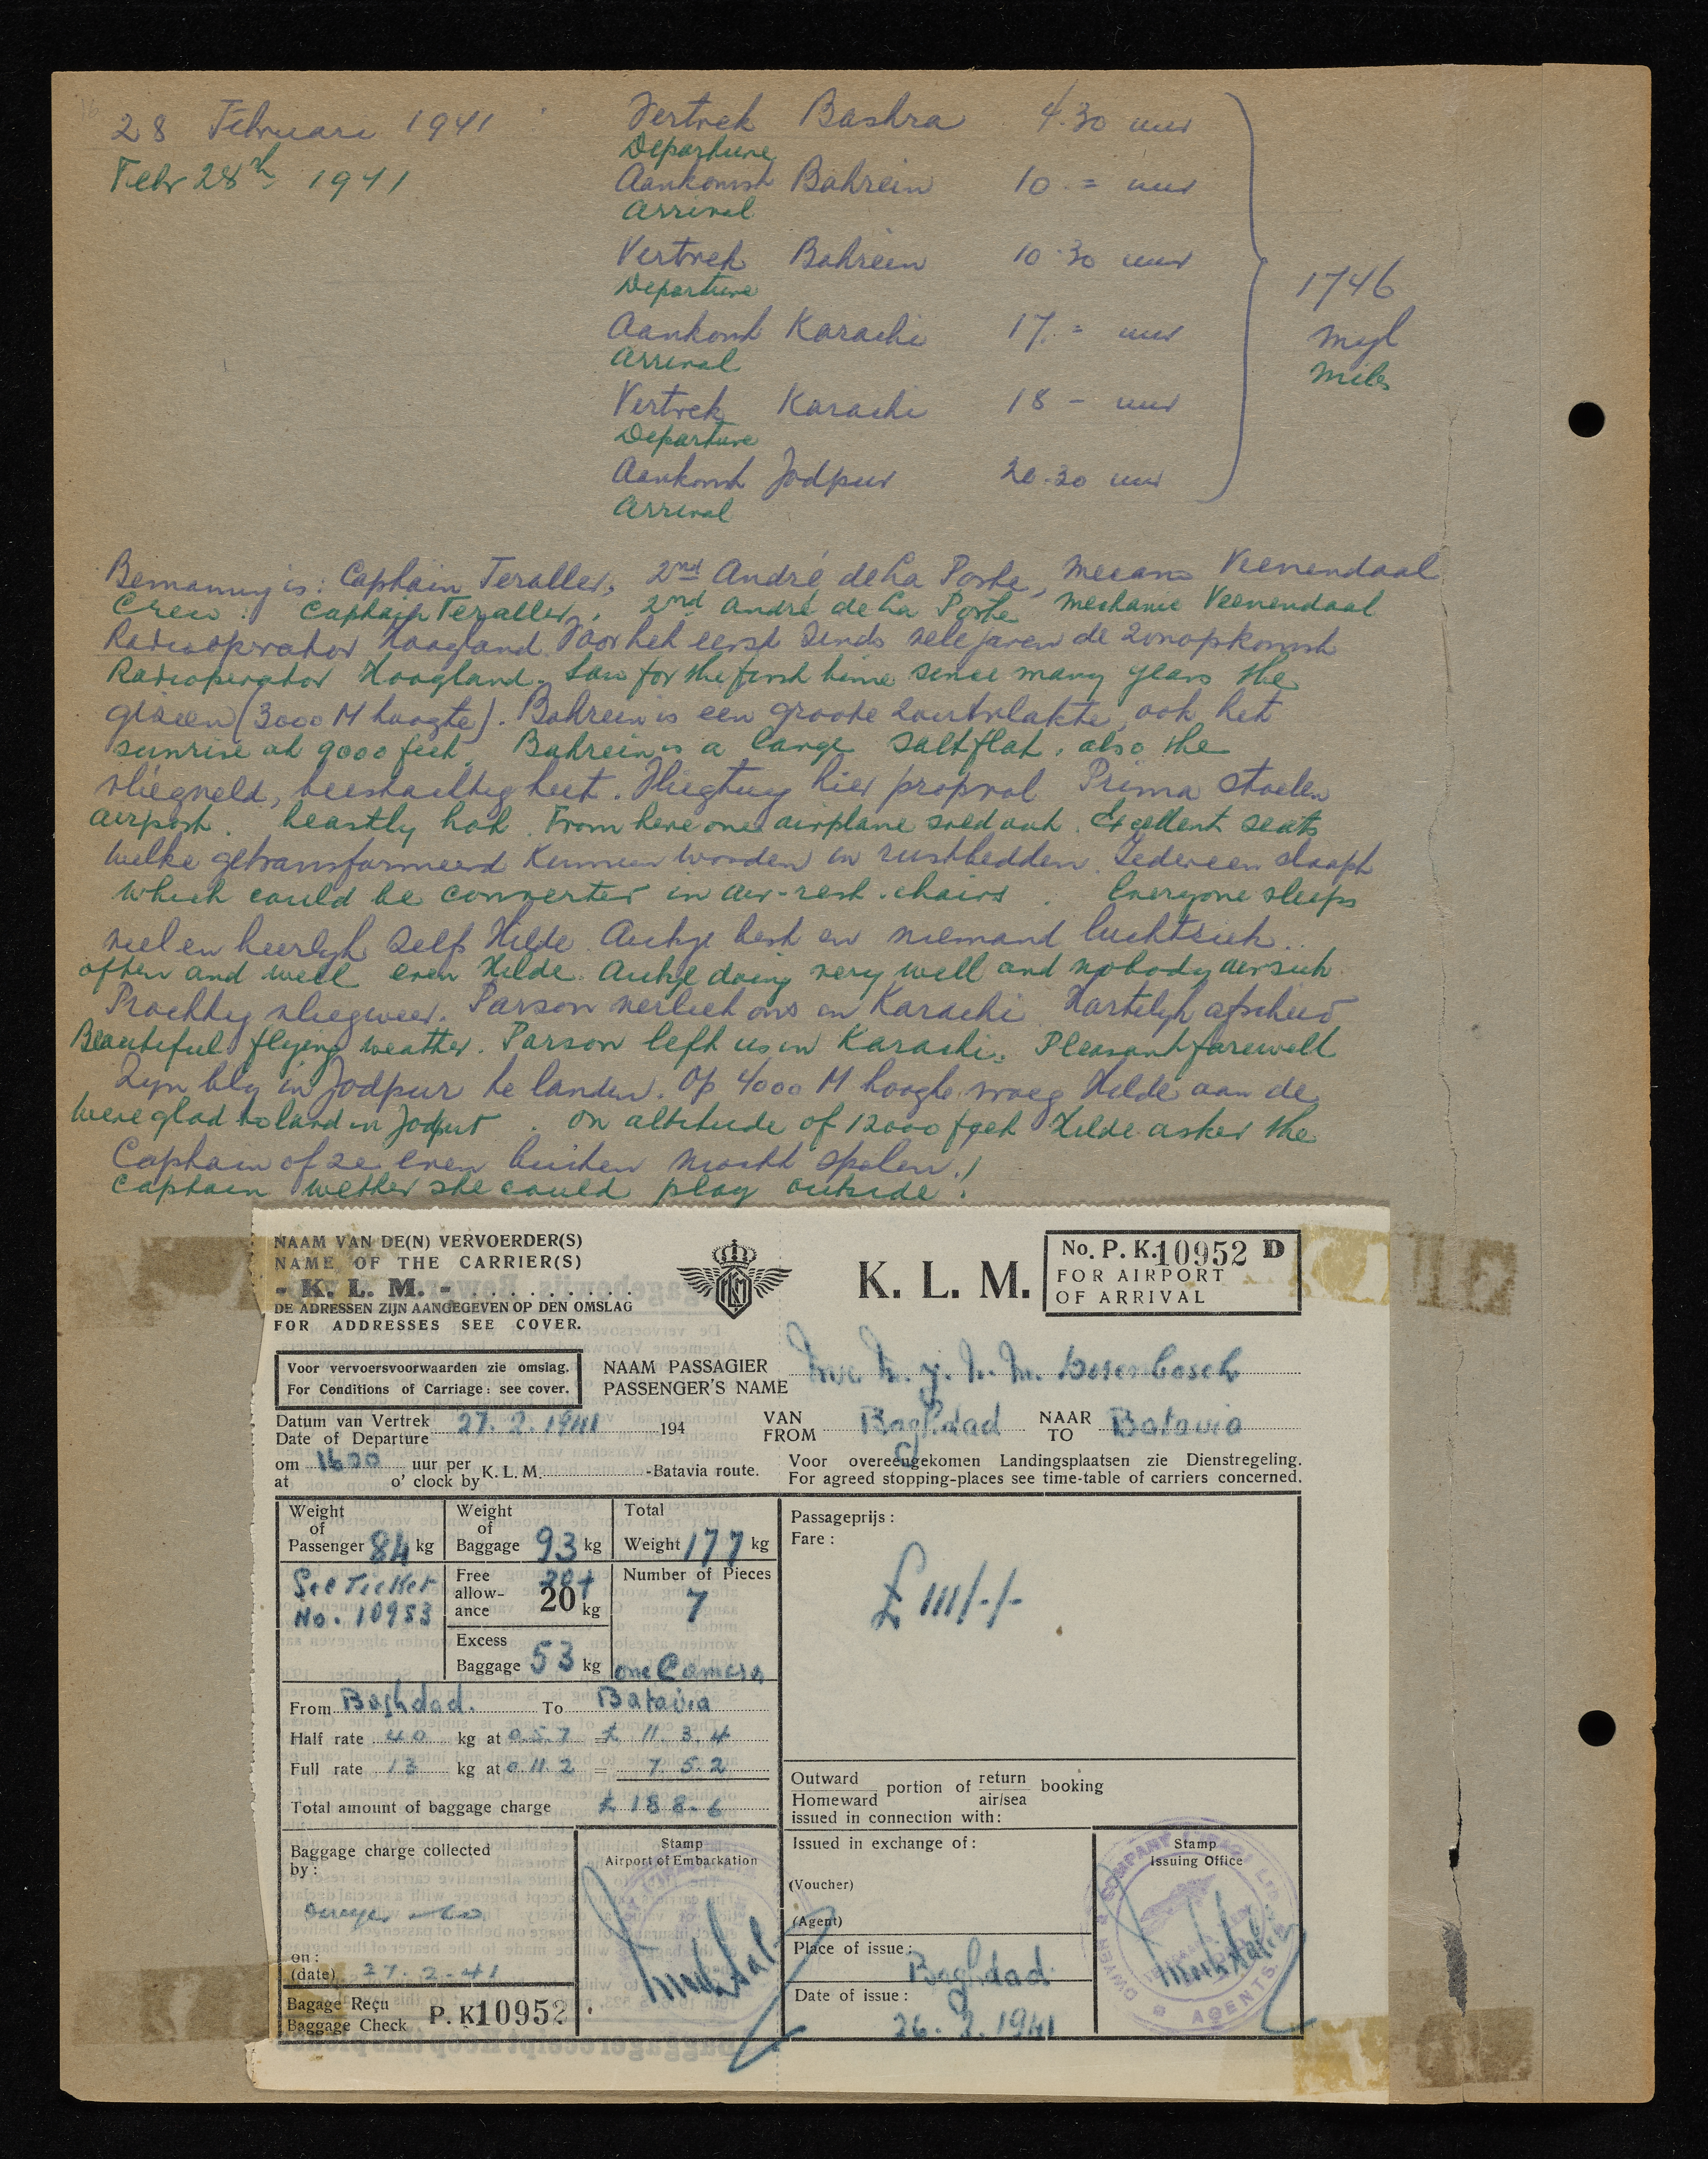 28 Februari 1941
Febr 28th 1941
Vertrek Bashra 4.30 uur
Departure
Aankomst Bahrein 10.= uur
Arrival
Vertrek Bahrein 10.30 uur
Departure
Aankomst Karachi 17.= uur
Arrival
Vertrek Karachi 18 - uur
Departure
Aankomst Jodpur 20.30 uur
Arrival
1746
myl
miles
Bemanning is: Captain Teraller, 2nd André de la Porte, mecano Veenendaal
Crew: Captain Teraller, 2nd André de la Porte mechanic Veenendaal
Radiooperator Hoogland Voor het eerst sinds vele jaren de zonopkomst
Radioperator Hoogland. Saw for the first time since many years the
gezien (3000 M hoogte). Bahrein is een groote zoutvlakte, ook het
sunrise at 9000 feet. Bahrein is a large saltflat, also the
vliegveld, beestachtig heet. Vliegtuig hier propvol Prima stoelen
airport. beastly hot. From here one airplane sold out. Excellent seats
welke getransformeerd kunnen worden in rustbedden. Iedereen slaapt
which could be converted in air-rest-chairs. Everyone sleeps
veel en heerlyk zelfs Hilde. Aukje best en niemand luchtziek..
often and well even Hilde. Aukje doing very well and nobody airsick.
Prachtig vliegweer. Parson verliet ons in Karachi Hartelyk afscheid
Beautiful flying weather. Parson left us in Karachi. Pleasant farewell
Zyn bly in Jodpur te landen. Op 4000 M hoogte vroeg Hilde aan de
Were glad to land in Jodpur. On altitude of 12000 feet Hilde asked the
Captain of ze even buiten mocht spelen!
Captain wether she could play outside!
NAAM VAN DE(N) VERVOERDER(S)
NAME OF THE CARRIER(S)
- K. L. M. -
DE ADRESSEN ZIJN AANGEGEVEN OP DEN OMSLAG
FOR ADDRESSES SEE COVER.
KLM
K. L. M.
No. P. K. 10952 D
FOR AIRPORT
OF ARRIVAL
Voor vervoersvoorwaarden zie omslag.
For Conditions of Carriage: see cover.
NAAM PASSAGIER
PASSENGER'S NAME
Datum van Vertrek 27.2.1941 194
Date of Departure
VAN Baghdad NAAR Batavia
FROM TO
om 1600 uur per K. L. M. -Batavia route.
at o' clock by
Voor overeengekomen Landingsplaatsen zie Dienstregeling.
For agreed stopping-places see time-table of carriers concerned.
Weight of Passenger 84 kg
Weight of Baggage 93 kg
Total Weight 177 kg
See Ticket
No. 10953
Free allow-ance 20+ 20 kg
Number of Pieces
7
Excess Baggage 53 kg
one Camera
Passageprijs:
Fare:
£ 111/-/-
From Baghdad. To Batavia
Half rate 40 kg at 0.5.7 = £ 11.3.4
Full rate 13 kg at 0 11.2 = 7.5.2
Total amount of baggage charge £ 18 8.6
Outward portion of return booking
Homeward air/sea
issued in connection with:
Baggage charge collected
by:
on:
(date) 27.2.41
Stamp
Airport of Embarkation
Issued in exchange of:
(Voucher)
(Agent)
Place of issue: Baghdad
Date of issue:
26.2.1941
Stamp
Issuing Office
AGENTS
Bagage Reçu
Baggage Check P. K 10952